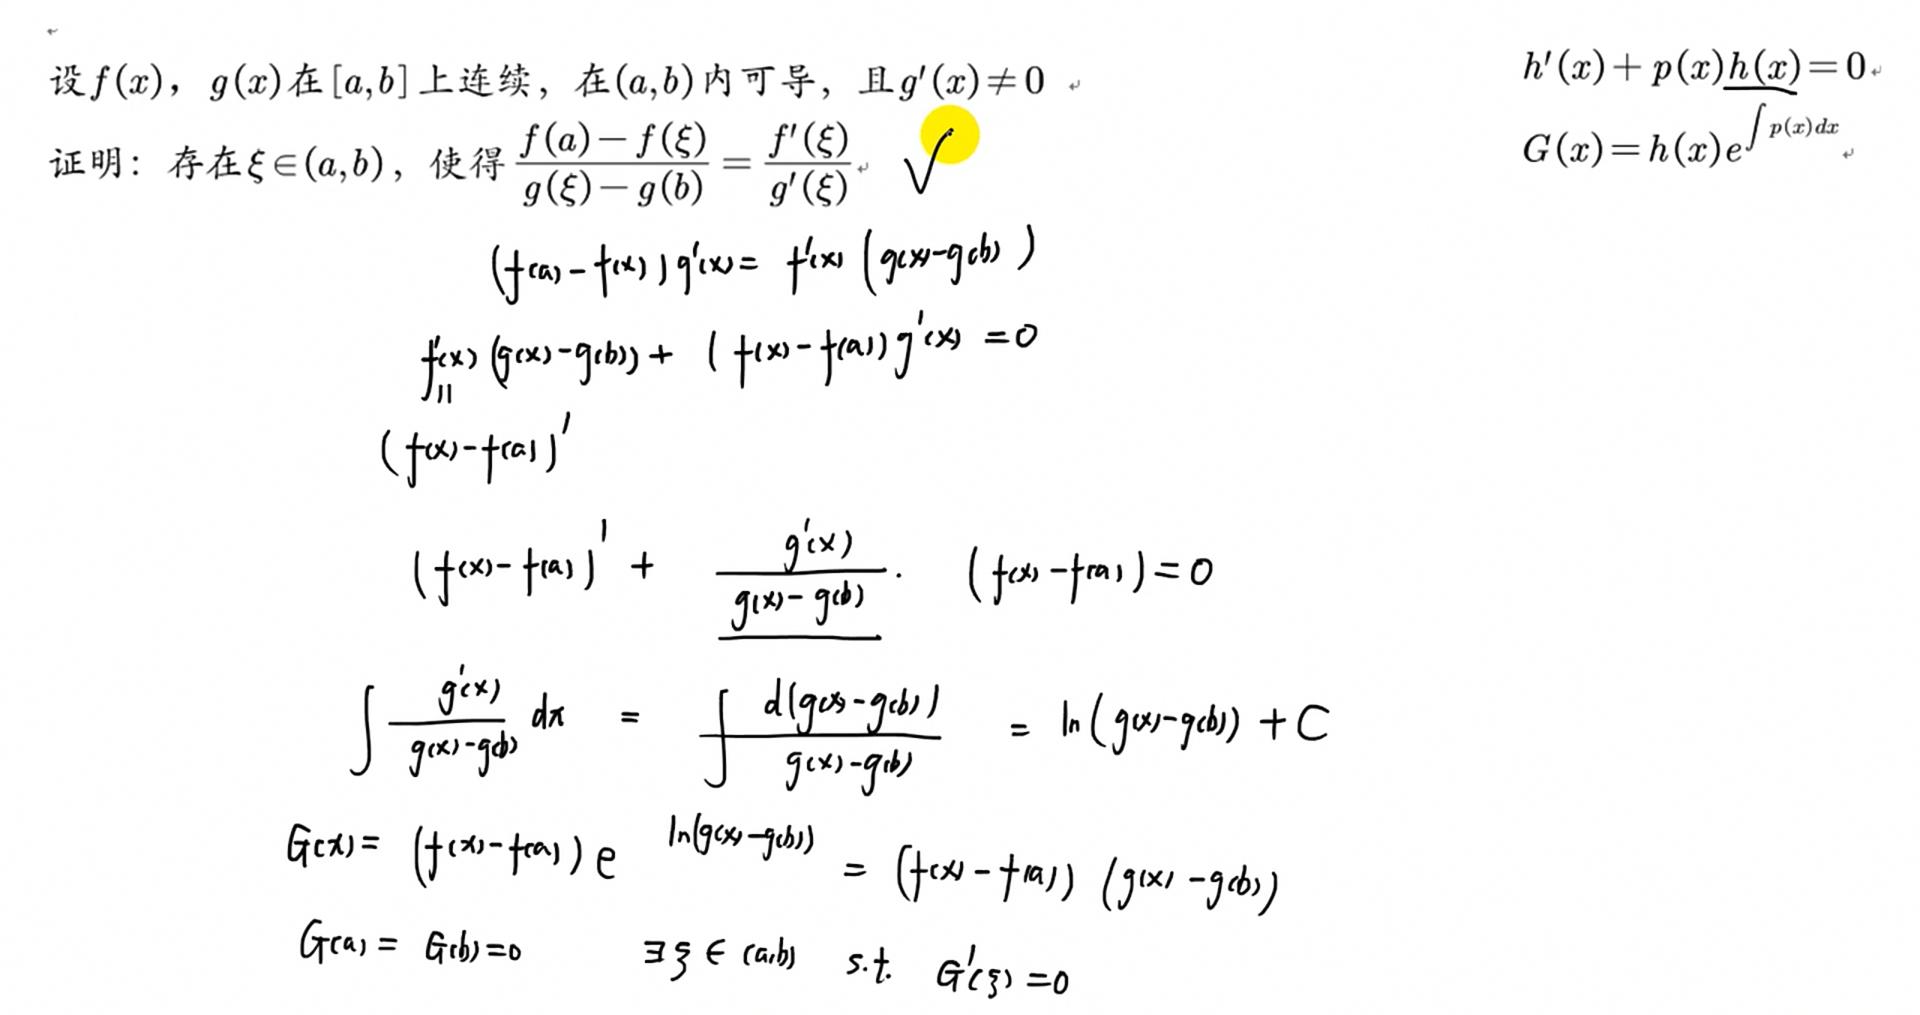 设f(x), g(x)在[a,b]上连续, 在(a,b)内可导, 且g'(x)≠0
证明: 存在ξ∈(a,b), 使得 \frac{f(a)-f(ξ)}{g(ξ)-g(b)} = \frac{f'(ξ)}{g'(ξ)} √
h'(x)+p(x)h(x)=0
G(x)=h(x)e^{∫p(x)dx}
(f(a)-f(x))g'(x)= f'(x)(g(x)-g(b))
f'(x)(g(x)-g(b))+(f(x)-f(a))g'(x)=0
||
(f(x)-f(a))'
(f(x)-f(a))' + \frac{g'(x)}{g(x)-g(b)}·(f(x)-f(a))=0
∫\frac{g'(x)}{g(x)-g(b)}dx = ∫\frac{d(g(x)-g(b))}{g(x)-g(b)} = ln(g(x)-g(b))+C
G(x)=(f(x)-f(a))e^{ln(g(x)-g(b))} = (f(x)-f(a))(g(x)-g(b))
G(a)=G(b)=0 ∃ξ∈(a,b) s.t. G'(ξ)=0